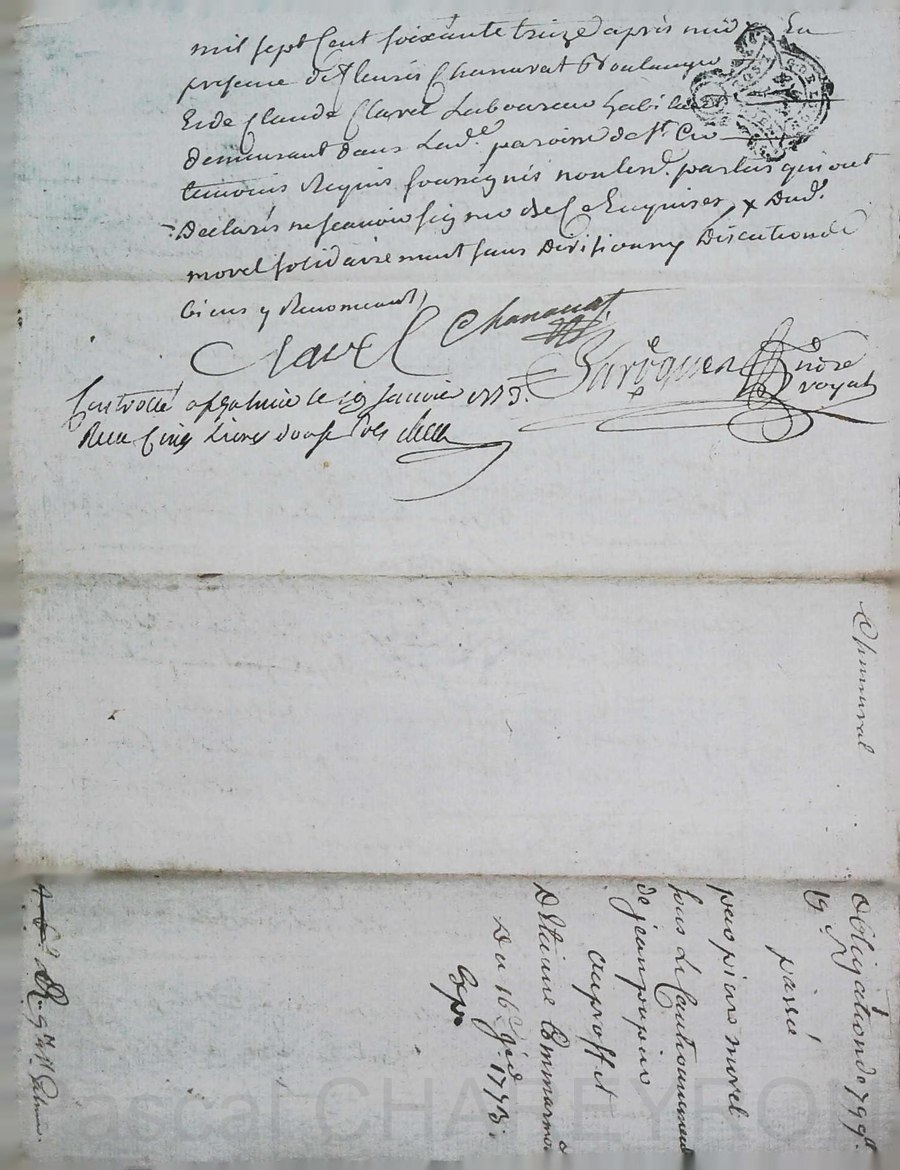 mil sept Cent soixante treize après midy En
presence de fleuris Chanavat Boulanger
Et de Claude Clavel Laboureur habitans
demeurant dans Lad.e paroisse de St. Cir
temoins Requis soussignés non led. parties qui ont
Declarés ne scavoir signer de ce Enquises x Dud.
morel solidairement sans Division ny Discution de
biens y Renonceant
Clavel Chanavat
notre royal
Controllé a le 19 Janvier 1773.
Reçu Cinq Livres douse sols
Chanavat
Obligation de 799#
19 s
passé
par pierre morel
sous Le Cautionnement
de jean
au proffit
D'Etienne Commarmond
Du 16 Jer 1773.
Exp.
ascal CHAREYRON